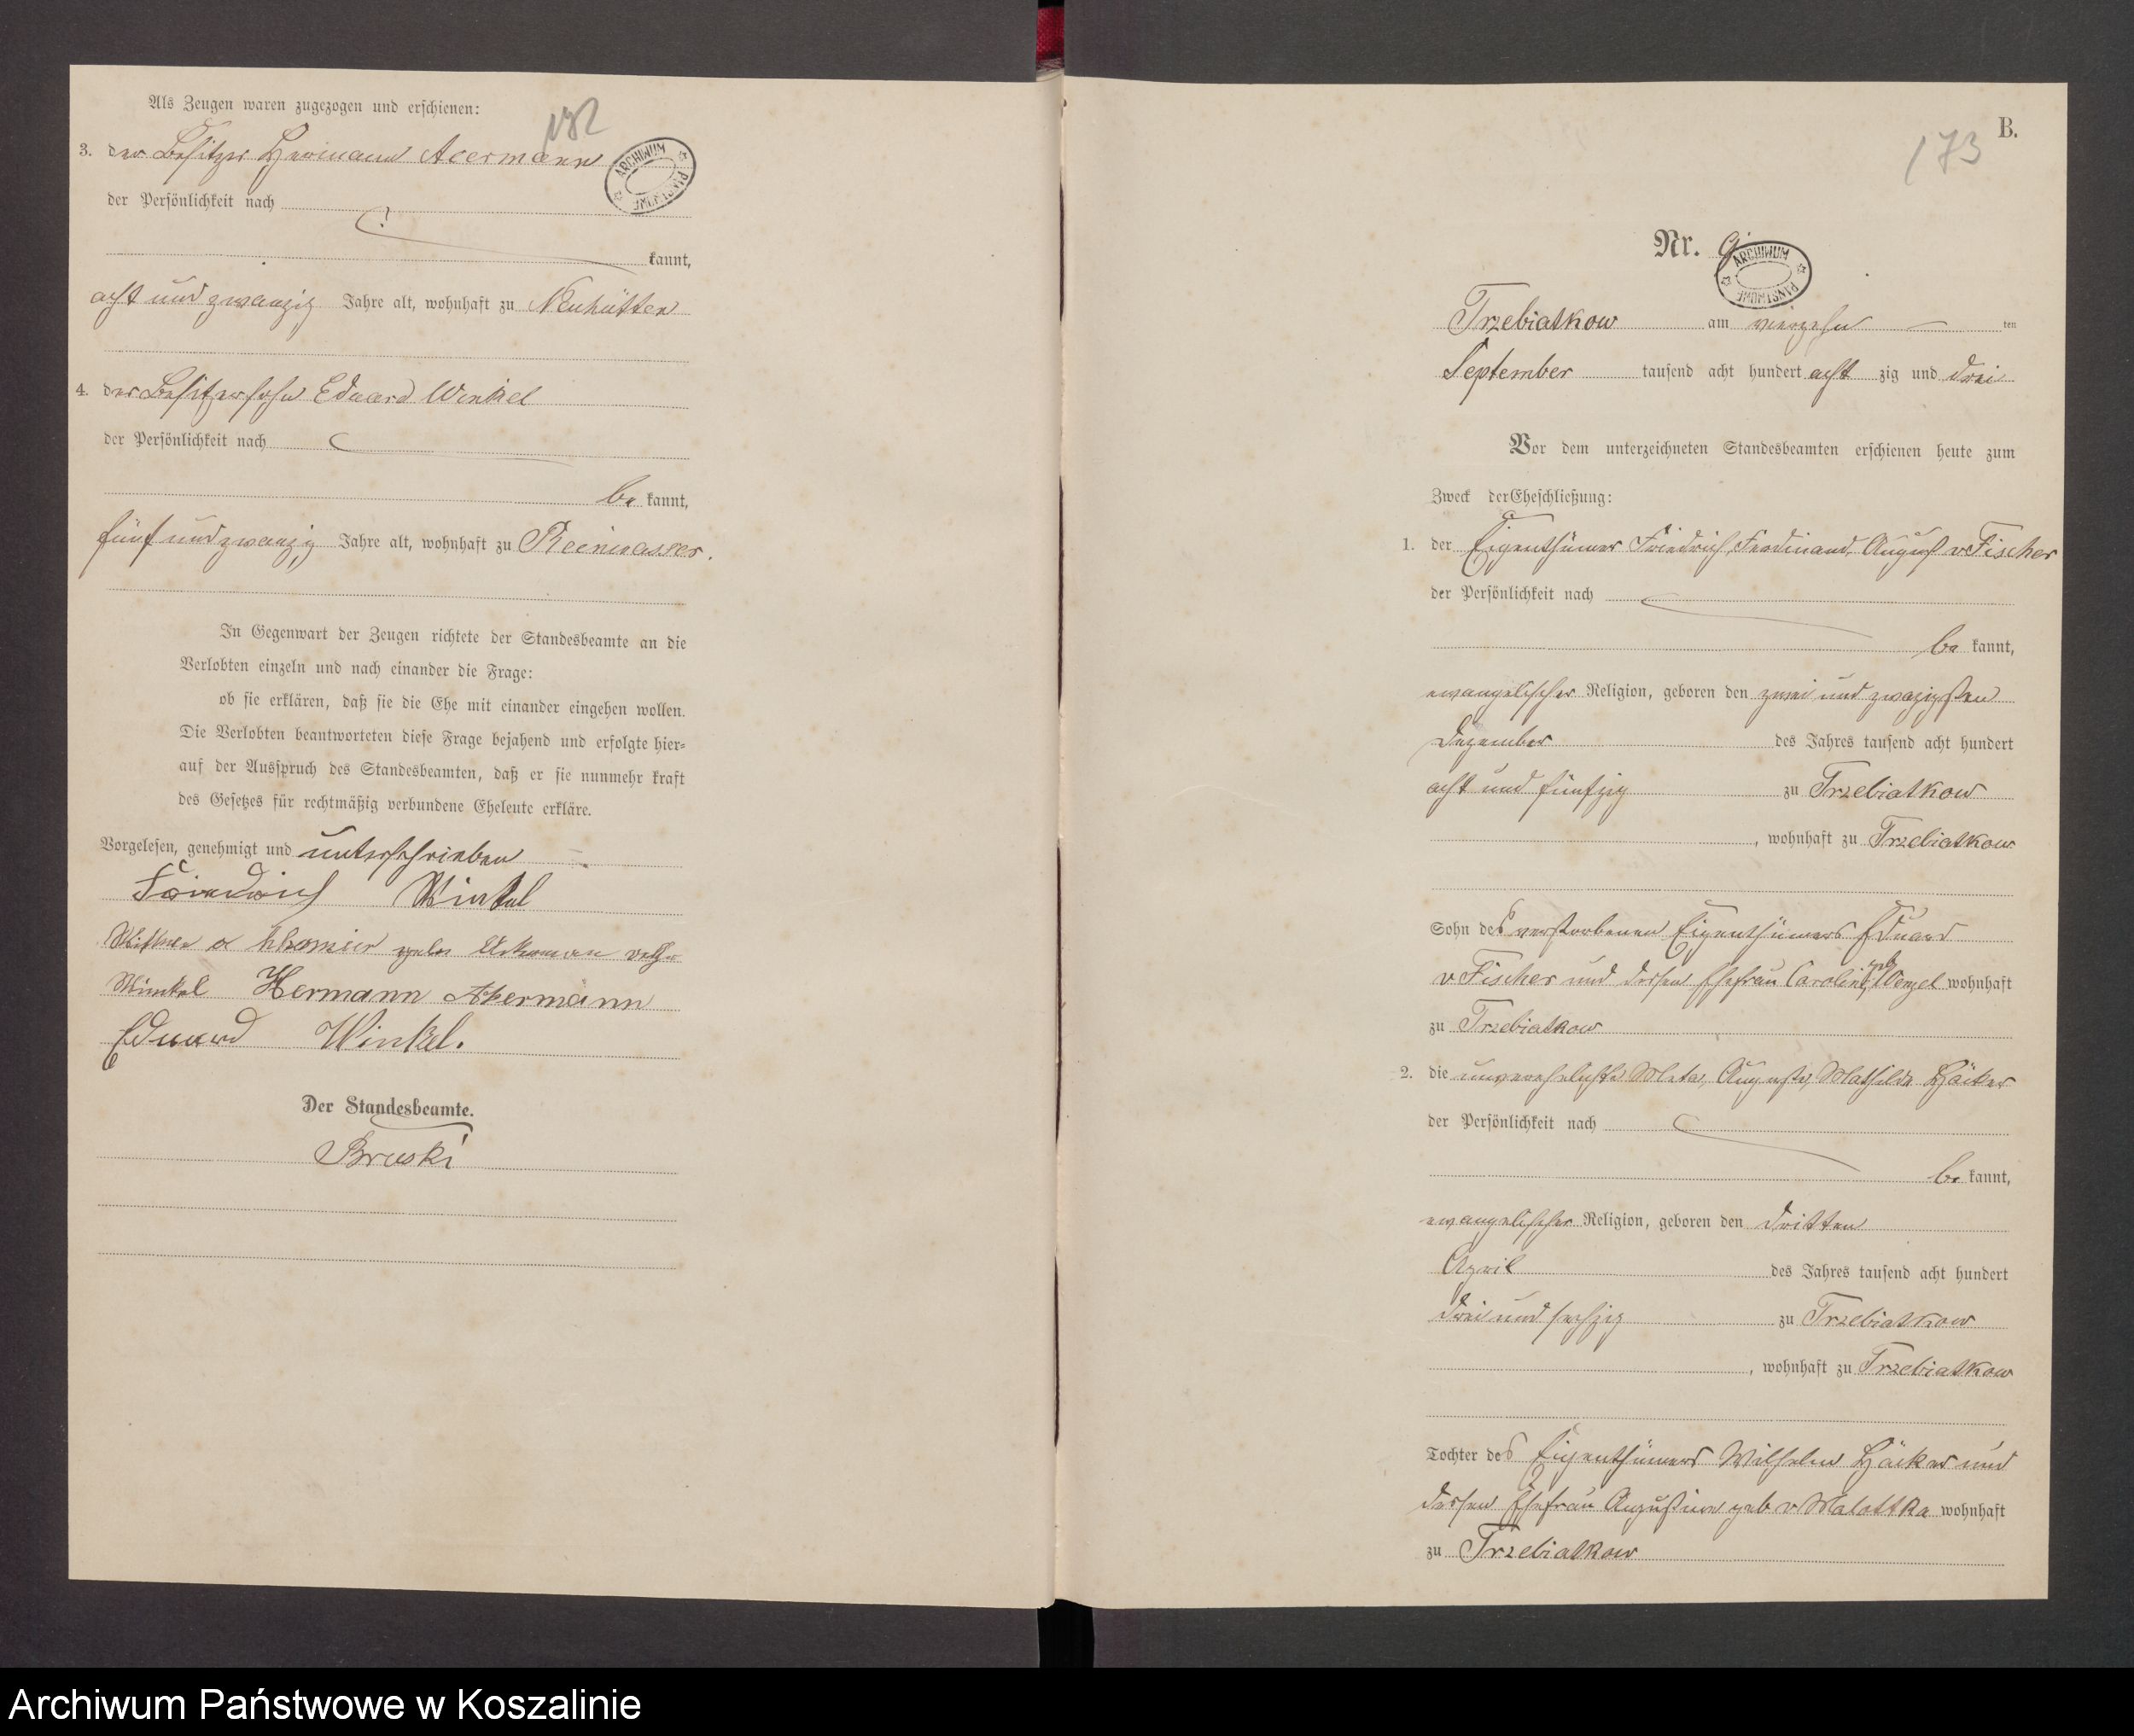 Als Zeugen waren zugezogen und erschienen:
172
3. der Besitzer Hermann Acermann
der Persönlichkeit nach
kannt,
acht und zwanzig Jahre alt, wohnhaft zu Neuhütten
4. der Besitzersohn Eduard Winkel
der Persönlichkeit nach
be kannt,
fünf und zwanzig Jahre alt, wohnhaft zu Reinwasser.
In Gegenwart der Zeugen richtete der Standesbeamte an die
Verlobten einzeln und nach einander die Frage:
ob sie erklären, daß sie die Ehe mit einander eingehen wollen.
Die Verlobten beantworteten diese Frage bejahend und erfolgte hier-
auf der Ausspruch des Standesbeamten, daß er sie nunmehr kraft
des Gesetzes für rechtmäßig verbundene Eheleute erkläre.
Vorgelesen, genehmigt und unterschrieben
Friedrich Winkel
Winkel Hermann Akermann
Eduard Winkel.
Der Standesbeamte.
Bruski
ARCHIWUM PAŃSTWOWE
B.
173
Nr. 9
ARCHIWUM PAŃSTWOWE
Trzebiatkow am vierzehn ten
September tausend acht hundert acht zig und drei
Vor dem unterzeichneten Standesbeamten erschienen heute zum
Zweck der Eheschließung:
1. der Eigenthümer Friedrich, Ferdinand, August v Fischer
der Persönlichkeit nach
be kannt,
evangelischer Religion, geboren den zwei und zwazigsten
Dezember des Jahres tausend acht hundert
acht und fünfzig zu Trzebiatkow
, wohnhaft zu Trzebiatkow
Sohn des verstorbenen Eigenthümers Eduard
v Fischer und dessen Ehefrau Caroline geb Wenzel wohnhaft
zu Trzebiatkow
2. die unverehelichte Meta, Auguste, Mathilde Häcker
der Persönlichkeit nach
be kannt,
evangelischer Religion, geboren den dritten
April des Jahres tausend acht hundert
drei und sechzig zu Trzebiatkow
, wohnhaft zu Trzebiatkow
Tochter des Eigenthümers Wilhelm Häcker und
dessen Ehefrau Augustine geb v Malottka wohnhaft
zu Trzebiatkow
Archiwum Państwowe w Koszalinie